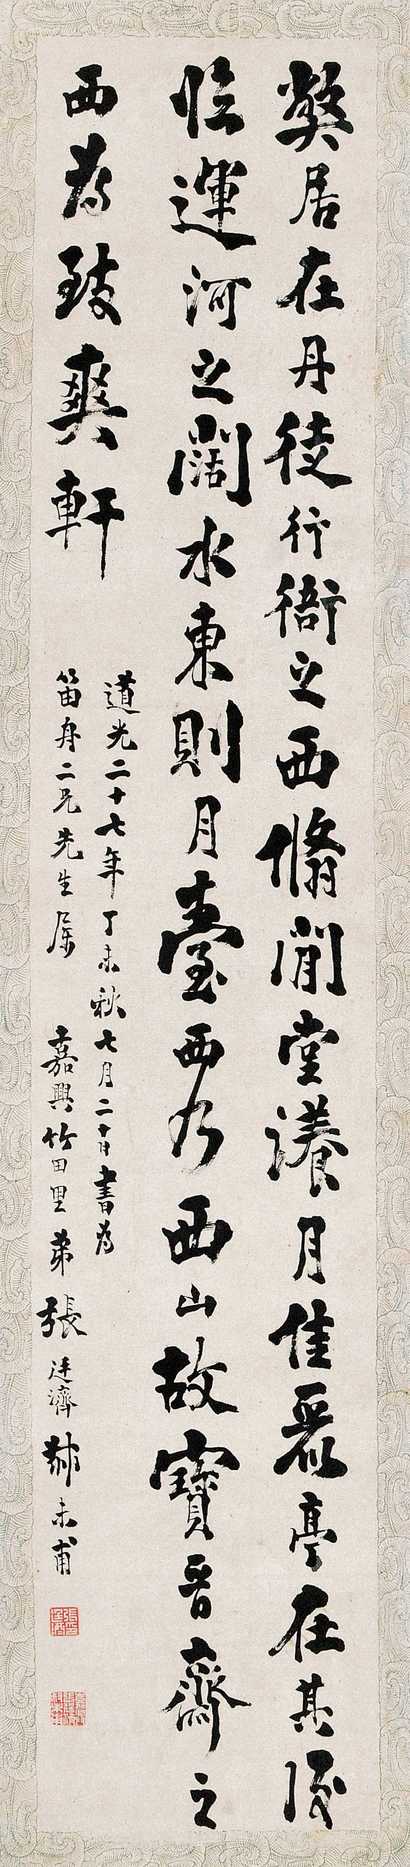 弊居在丹徒行衙之西脩閒堂漾月佳麗亭在其後
臨運河之闊水東則月臺西乃西山故寶晉齋之
西為致爽軒
道光二十七年丁未秋七月二十日書為
笛舟二兄先生屬 嘉興竹田里弟張廷濟叔未甫